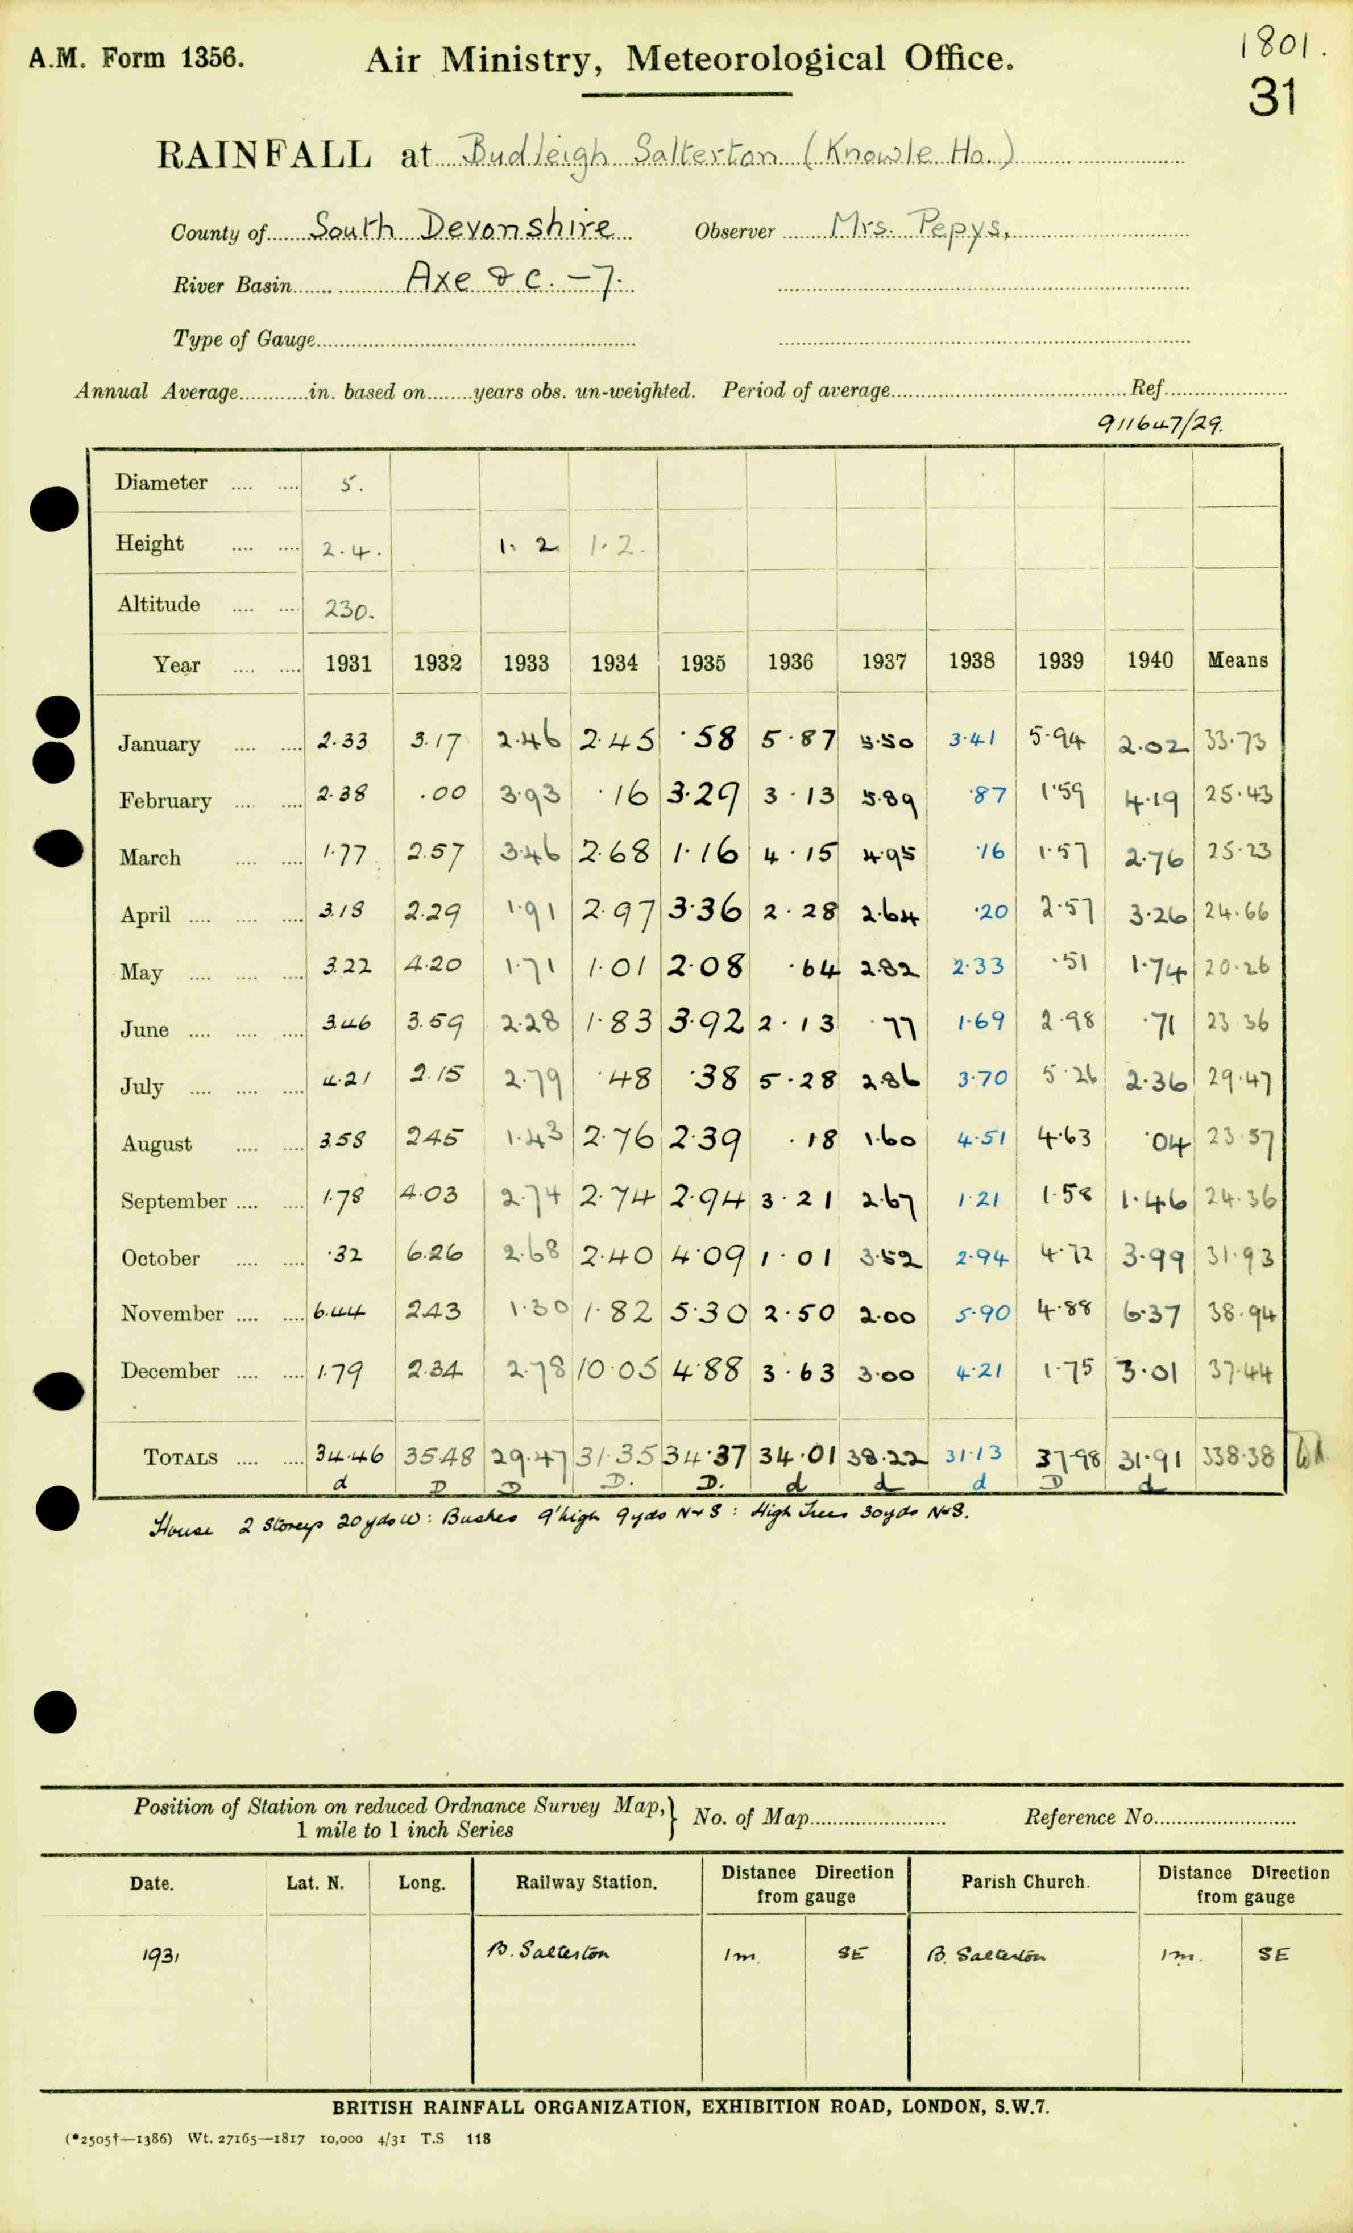 A.M. Form 1356.
Air Ministry, Meteorological Office.
1801.
31
RAINFALL at Budleigh Salterton (Knowle Ho.)
County of South Devonshire Observer Mrs. Pepys.
River Basin Axe & c. – 7.
Type of Gauge
Annual Average in. based on years obs. un-weighted. Period of average Ref.
911647/29.
Diameter 5.
Height 2.4. 1.2 1.2.
Altitude 230.
Year 1931 1932 1933 1934 1935 1936 1937 1938 1939 1940 Means
January 2.33 3.17 2.46 2.45 .58 5.87 5.50 3.41 5.94 2.02 33.73
February 2.38 .00 3.93 .16 3.29 3.13 5.89 .87 1.59 4.19 25.43
March 1.77 2.57 3.46 2.68 1.16 4.15 4.95 .16 1.57 2.76 25.23
April 3.18 2.29 1.91 2.97 3.36 2.28 2.64 .20 2.57 3.26 24.66
May 3.22 4.20 1.71 1.01 2.08 .64 2.82 2.33 .51 1.74 20.26
June 3.46 3.59 2.28 1.83 3.92 2.13 .77 1.69 2.98 .71 23.36
July 4.21 2.15 2.79 .48 .38 5.28 2.86 3.70 5.26 2.36 29.47
August 3.58 2.45 1.43 2.76 2.39 .18 1.60 4.51 4.63 .04 23.57
September 1.78 4.03 2.74 2.74 2.94 3.21 2.67 1.21 1.58 1.46 24.36
October .32 6.26 2.68 2.40 4.09 1.01 3.52 2.94 4.72 3.99 31.93
November 6.44 2.43 1.30 1.82 5.30 2.50 2.00 5.90 4.88 6.37 38.94
December 1.79 2.34 2.78 10.05 4.88 3.63 3.00 4.21 1.75 3.01 37.44
TOTALS 34.46 35.48 29.47 31.35 34.37 34.01 38.22 31.13 37.98 31.91 338.38
d D D D. D. d d d D d
House 2 Storeys 20 yds W : Bushes 9' high 9 yds N & S : High Trees 30 yds N & S.
Position of Station on reduced Ordnance Survey Map,} No. of Map Reference No.
1 mile to 1 inch Series
Date. Lat. N. Long. Railway Station. Distance Direction from gauge Parish Church. Distance Direction from gauge
1931 B. Salterton 1 m. SE B. Salterton 1 m. SE
BRITISH RAINFALL ORGANIZATION, EXHIBITION ROAD, LONDON, S.W.7.
(*2505†—1386) Wt. 27165—1817 10,000 4/31 T.S 118